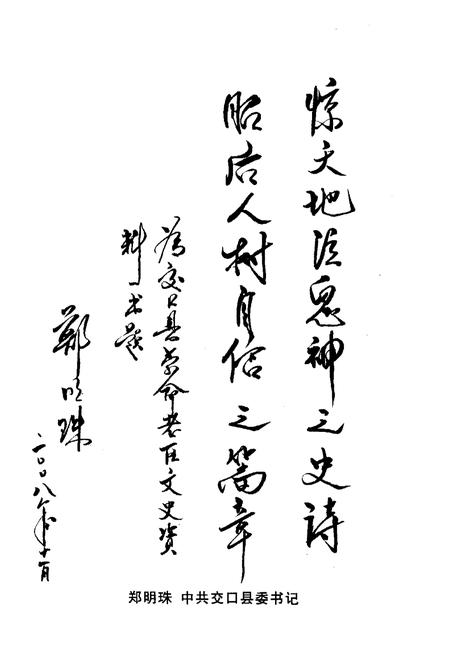 惊天地泣鬼神之史诗
昭后人树自信之篇章
为交口县革命老区文史资
料书题
郑明珠
二〇〇八年十月
郑明珠 中共交口县委书记